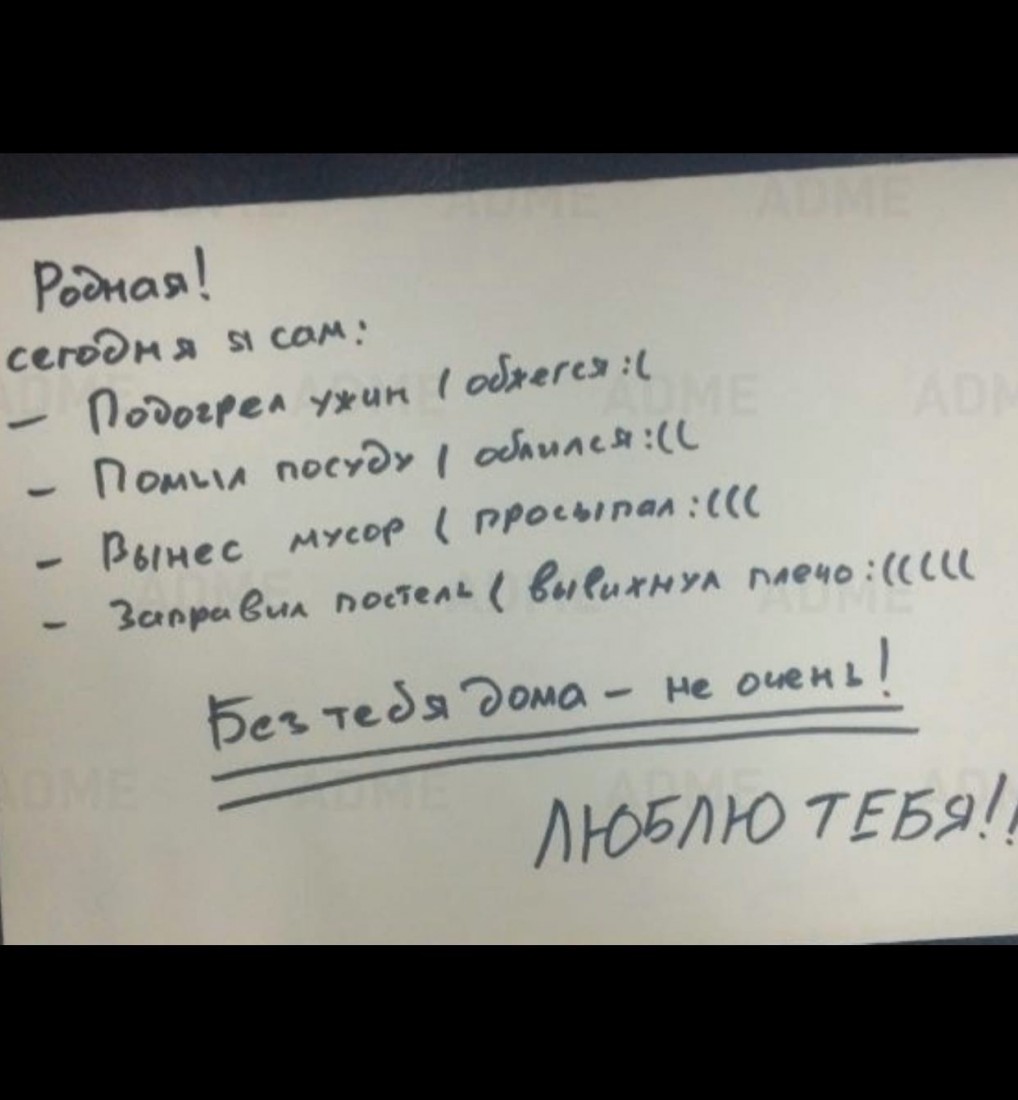 Родная!
сегодня я сам:
- Подогрел ужин (обжегся :(
- Помыл посуду (облился :((
- Вынес мусор (просыпал :(((
- Заправил постель (вывихнул плечо :(((((
Без тебя дома - не очень!
ЛЮБЛЮ ТЕБЯ!!
ADME